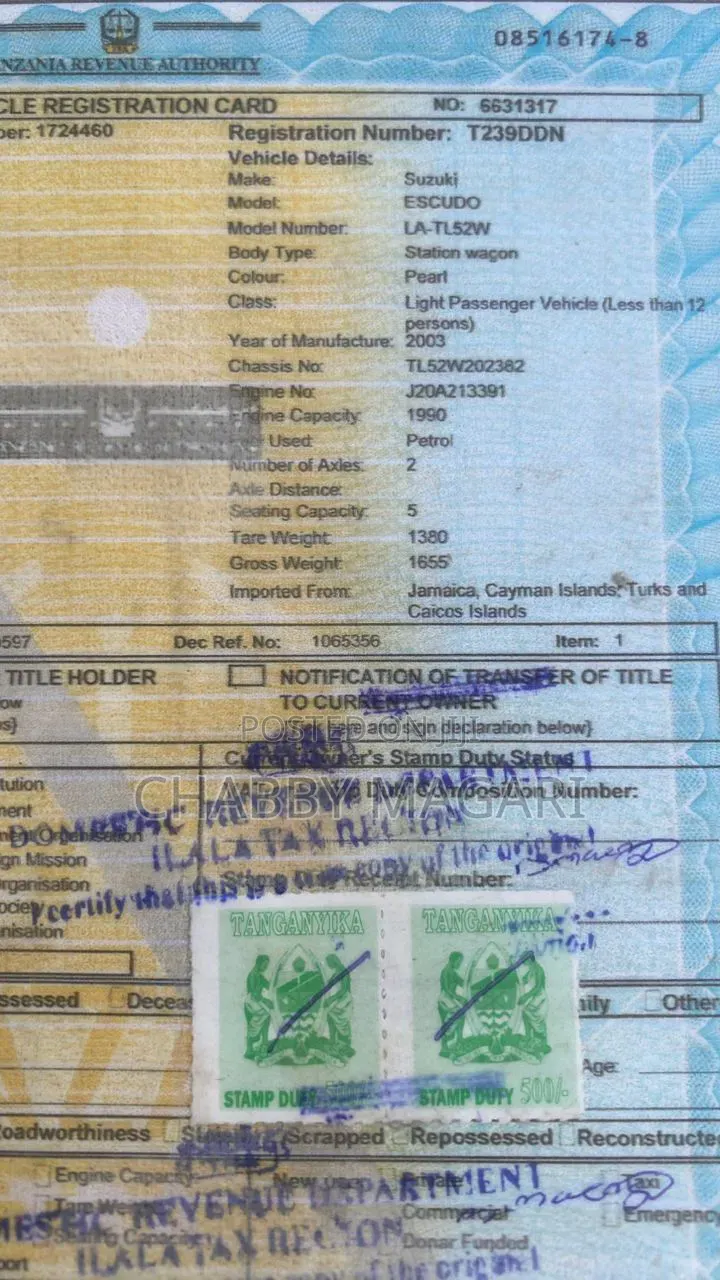 NZANIA REVENUE AUTHORITY
08516174-8
CLE REGISTRATION CARD NO: 6631317
ber: 1724460 Registration Number: T239DDN
Vehicle Details:
Make: Suzuki
Model: ESCUDO
Model Number: LA-TL52W
Body Type: Station wagon
Colour: Pearl
Class: Light Passenger Vehicle (Less than 12
persons)
Year of Manufacture: 2003
Chassis No: TL52W202382
Engine No: J20A213391
Engine Capacity: 1990
Used: Petrol
Number of Axles: 2
Axle Distance:
Seating Capacity: 5
Tare Weight: 1380
Gross Weight: 1655
Imported From: Jamaica, Cayman Islands, Turks and
Caicos Islands
597 Dec Ref. No: 1065356 Item: 1
TITLE HOLDER NOTIFICATION OF TRANSFER OF TITLE
ow TO CURRENT OWNER
s} and sign declaration below}
POSTED ON JIJI
Current Owner's Stamp Duty Status
CHABBY MAGARI
tution Duty Composition Number:
ment
DOMESTIC REVENUE DEPARTMENT
ment Organisation
ILALA TAX REGION
ign Mission
organisation Stamp Duty Receipt Number:
I certify that this is a true copy of the original
nisation
TANGANYIKA TANGANYIKA
ssessed Deceas ily Other
Age:
STAMP DUTY STAMP DUTY 500/-
oadworthiness Scrapped Repossessed Reconstructe
Engine Capacity New Taxi
Tare Weight Commercial Emergenc
MESTIC REVENUE DEPARTMENT
Seating Capacity Donar Funded
ILALA TAX REGION
port copy of the original